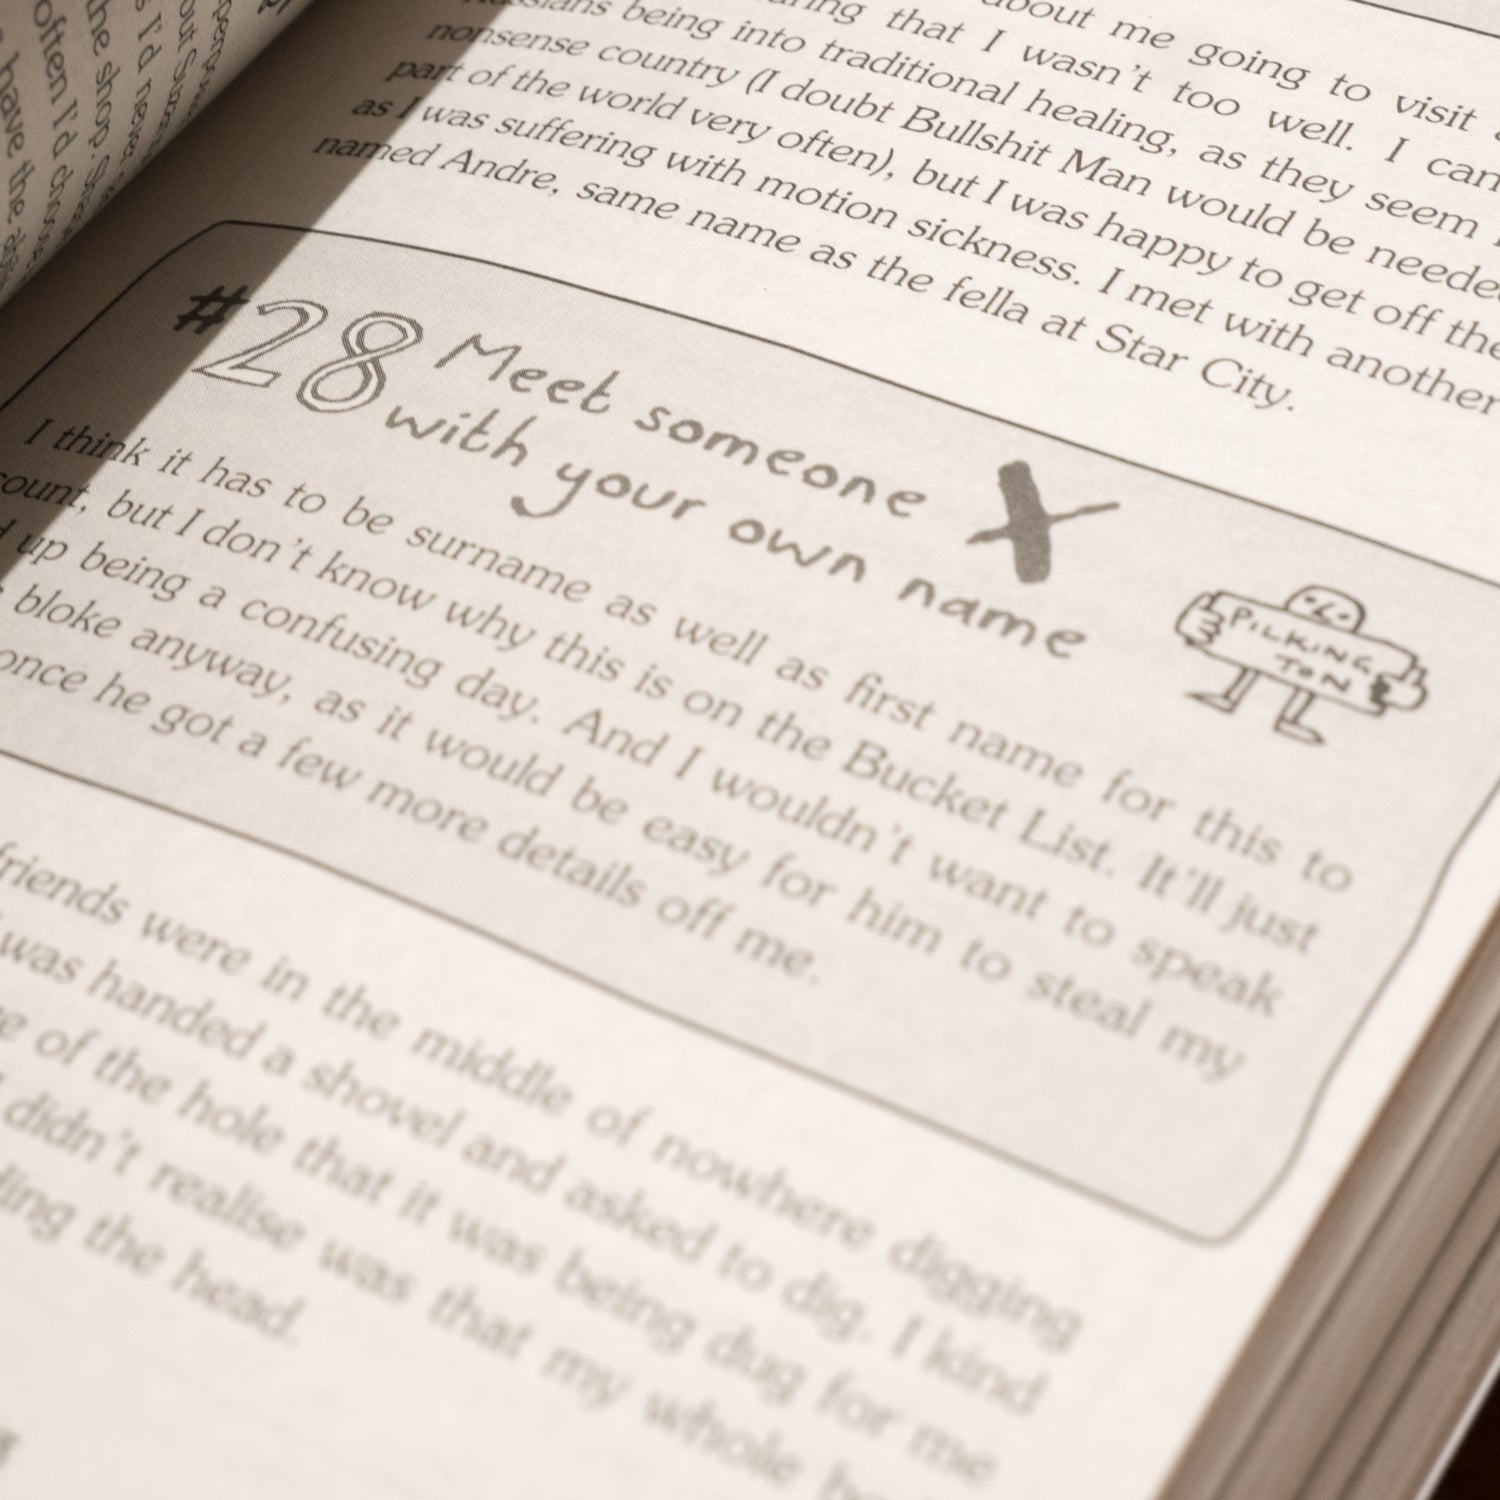 about me going to visit
that I wasn't too well. I can
being into traditional healing, as they seem
nonsense country (I doubt Bullshit Man would be needed
part of the world very often), but I was happy to get off the
as I was suffering with motion sickness. I met with another
named Andre, same name as the fella at Star City.
#28 Meet someone
with your own name
PILKING
TON
I think it has to be surname as well as first name for this to
count, but I don't know why this is on the Bucket List. It'll just
up being a confusing day. And I wouldn't want to speak
bloke anyway, as it would be easy for him to steal my
once he got a few more details off me.
friends were in the middle of nowhere digging
was handed a shovel and asked to dig. I kind
of the hole that it was being dug for me
didn't realise was that my whole
the head.
often I'd choose
the shop.
I'd never
have the